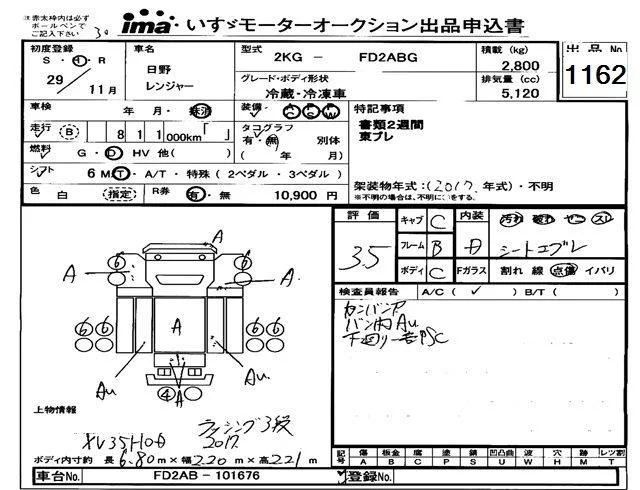 ※赤太枠内は必ず
ボールペンで
ご記入下さい
ima いすゞモーターオークション出品申込書
初度登録 車名 型式 2KG - FD2ABG 積載 (kg) 2,800 出品 No
S・H・R 29 / 11月 日野 レンジャー グレード・ボディ形状 冷蔵・冷凍車 排気量 (cc) 5,120 1162
車検 年 月・抹消 装備 AC PS PW 特記事項
走行 B 8 1 1 000km「 」 タコグラフ 有・無 別体 書類2週間
燃料 G・D HV 他( ) ( 年 月) 東プレ
シフト 6 MT・A/T・特殊 ( 2ペダル・3ペダル )
色 白 (指定) R券 有・無 10,900 円 架装物年式:(2017.年式)・不明
※不明の場合は、不明に○をする。
評価 キャブ C 内装 汚れ 破れ ヤニ スレ
3.5 フレーム B シートエプレ
ボディ C Fガラス 割れ 線 点傷 イバリ
検査員報告 A/C ( ✓ ) B/T ( )
カンバンア
バン内Au
A A
6 6
6 6 A 6 6
Au Au
4 A
上物情報
ラッシング3段
2017.
ボディ内寸約 長 6.80m × 幅 2.20m × 高 2.21m
記号 傷 板金 腐 塗 錆 凹凸曲 波 穴 跡 レツ割
A B C P S U W H M T
車台No. FD2AB - 101676 登録No.